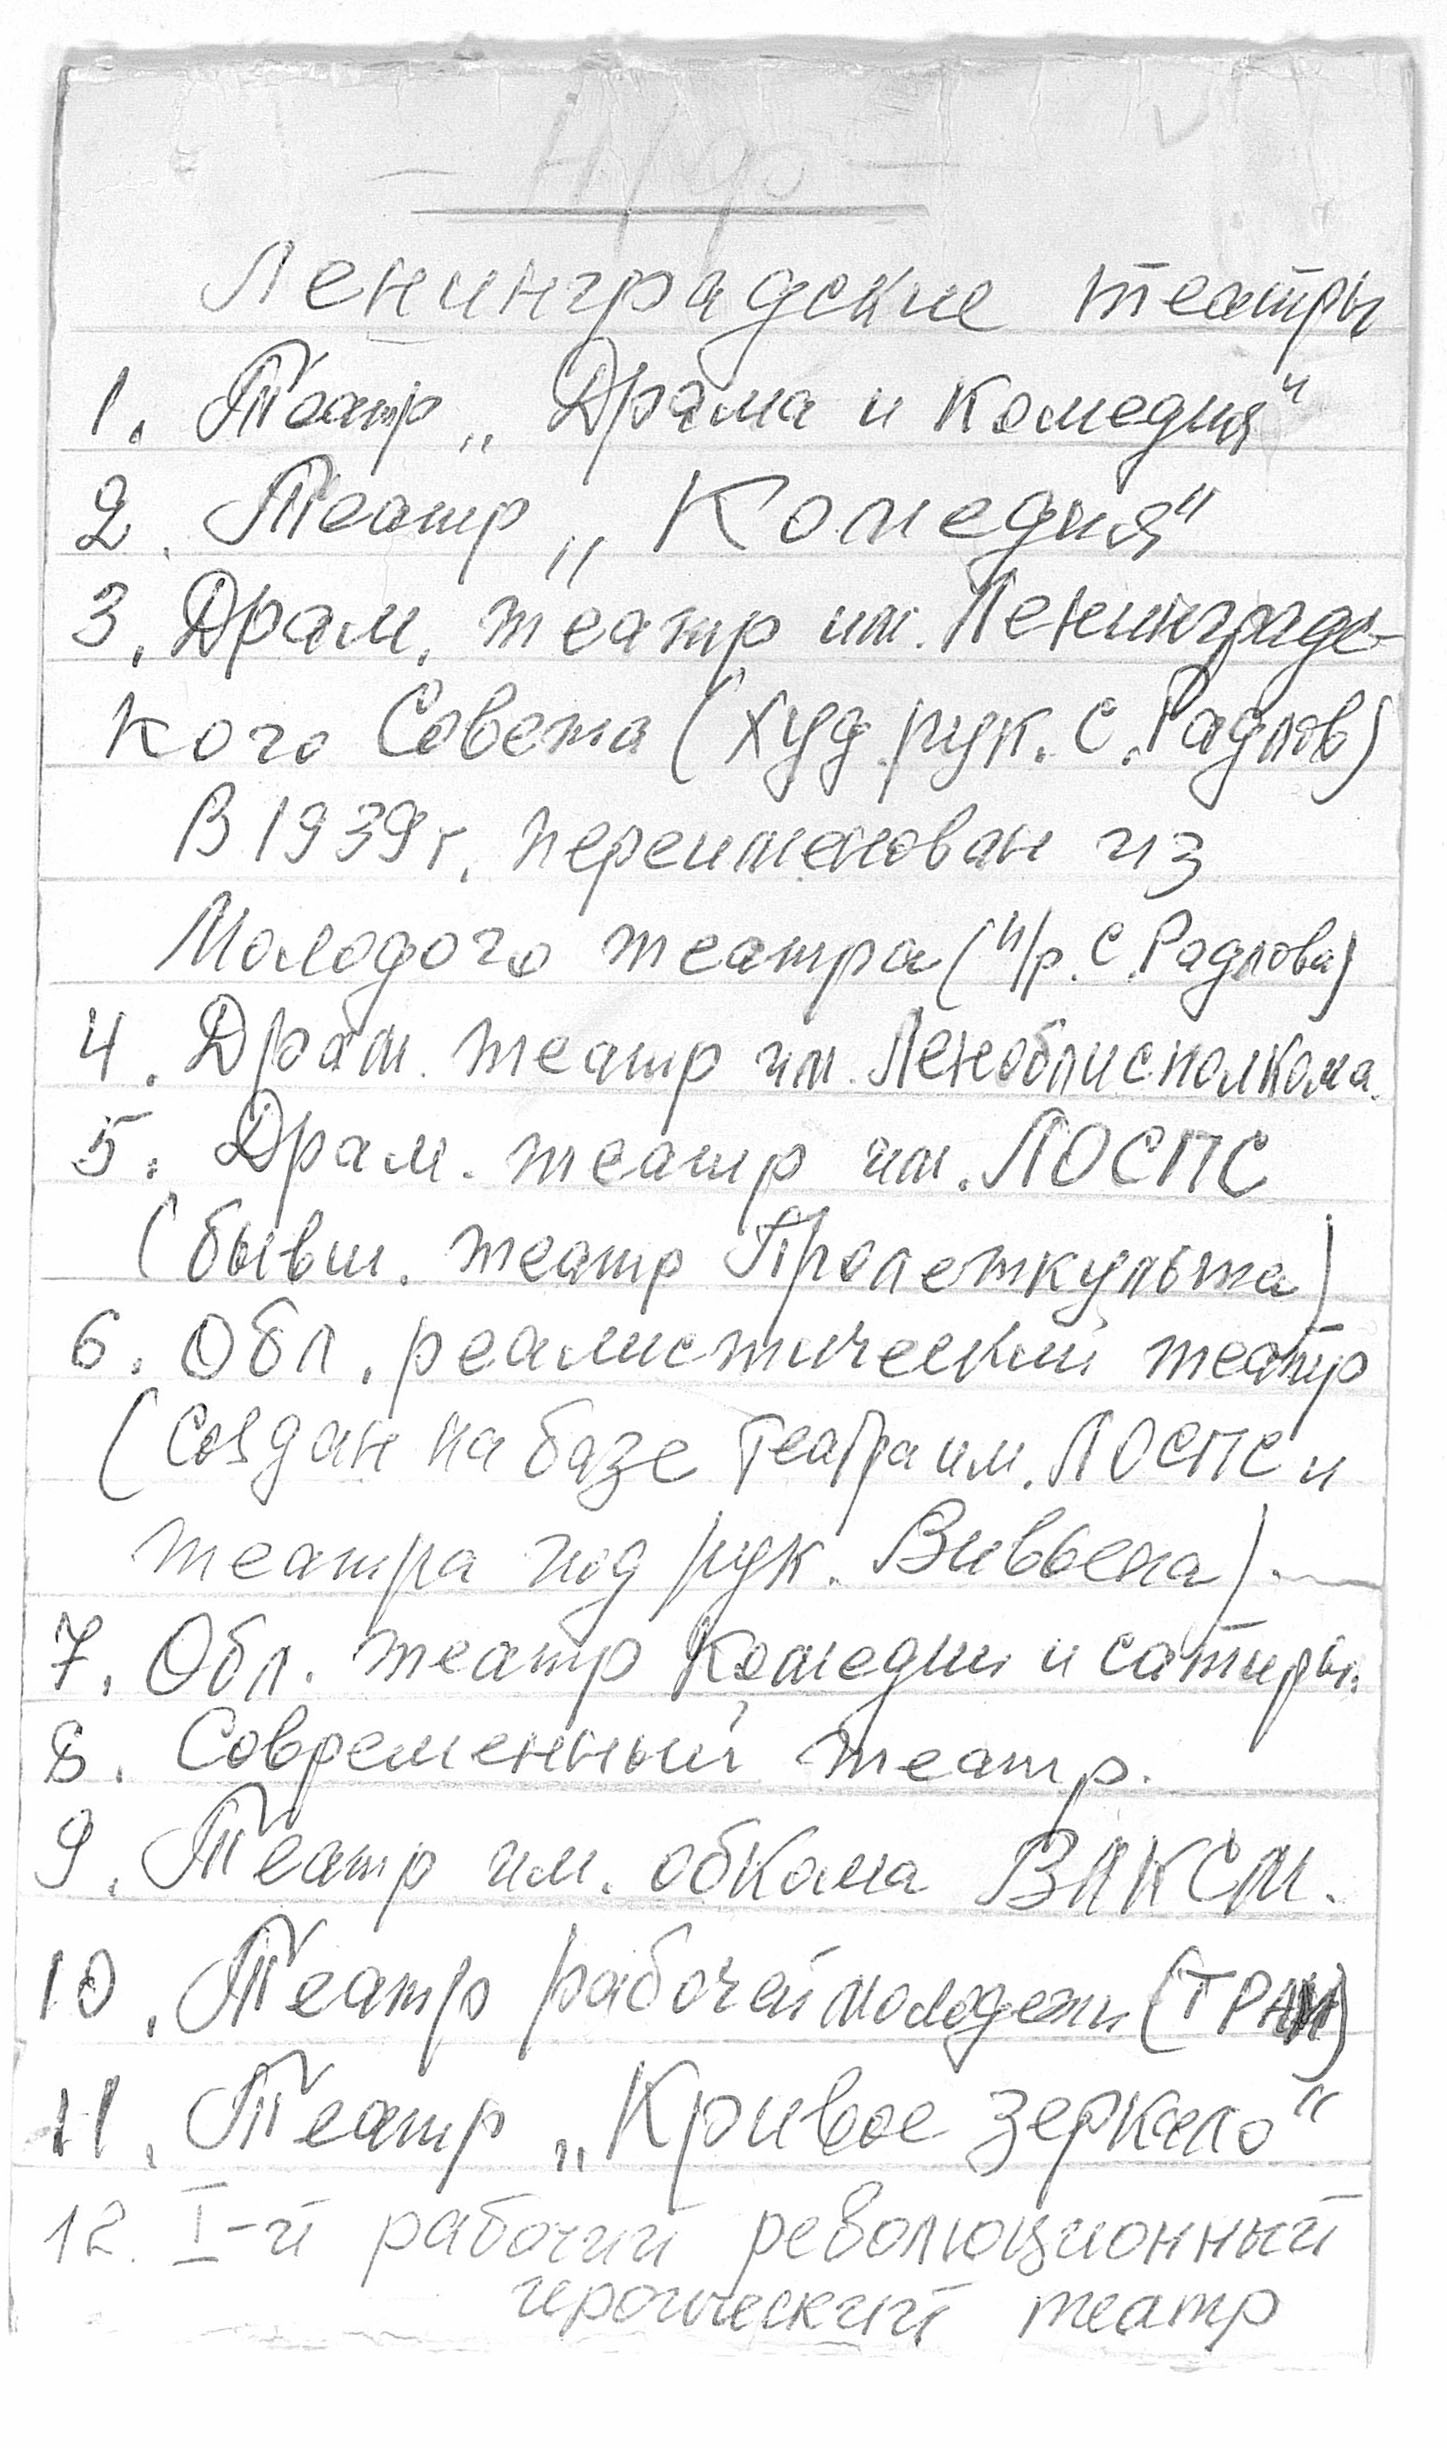 Ленинградские театры
1. Театр „Драма и Комедия"
2. Театр „Комедия"
3. Драм. театр им. Ленинградс-
кого Совета (худ. рук. С. Радлов)
В 1939 г. переименован из
Молодого театра (п/р. С. Радлова)
4. Драм. театр им. Леноблисполкома.
5. Драм. театр им. ЛОСПС
(бывш. театр Пролеткульта)
6. Обл. реалистический театр
(Создан на базе театра им. ЛОСПС и
театра под рук. Вивьена).
7. Обл. театр Комедии и сатиры.
8. Современный театр.
9. Театр им. обкома ВЛКСМ.
10. Театр рабочей молодежи (ТРАМ)
11. Театр „Кривое зеркало"
12. I-й рабочий революционный
героический театр